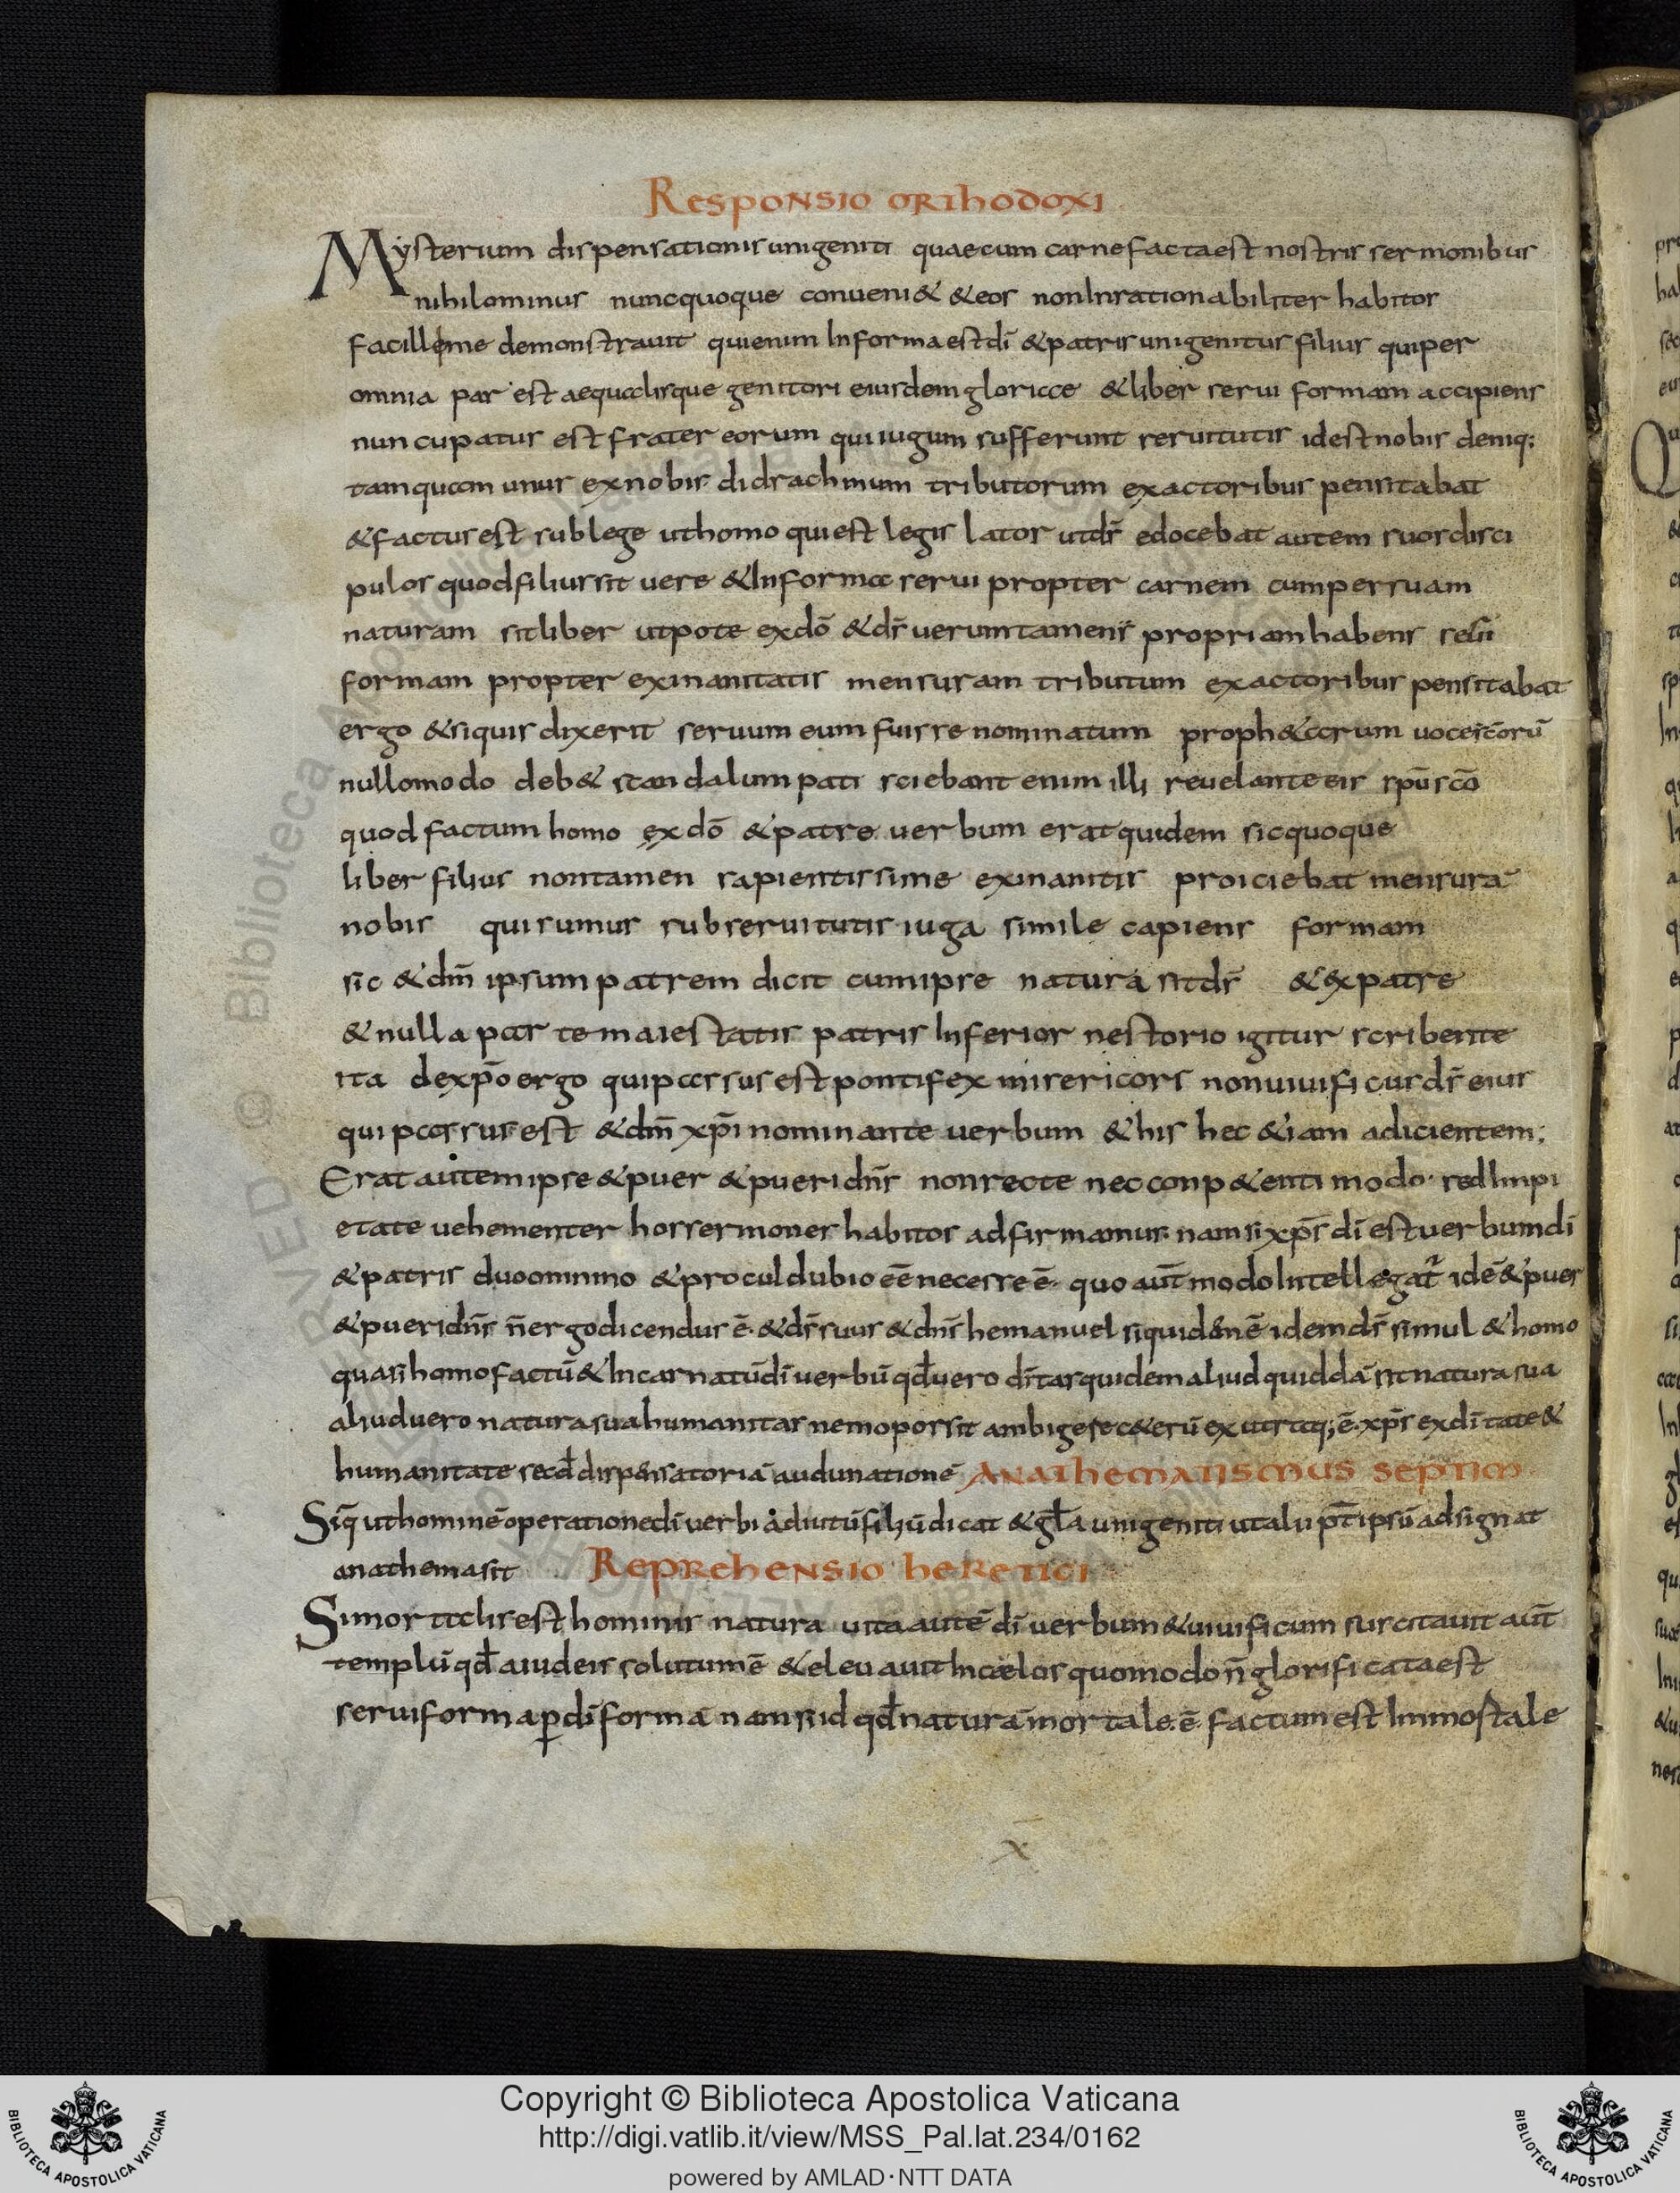 Responsio orthodoxi
Mysterium dispensationis unigeniti quaecum carne facta est nostris sermonibus
nihilominus nuncquoque conueni& &eos non Inrationabiliter habitos
facilleme demonstrauit quienim Informa est dī &patris unigenitus filius quiper
omnia par est aequalisque genitori eiusdem gloriae &liber serui formam accipiens
nuncupatus est frater eorum qui iugum sufferunt seruitutis idest nobis deniq;
tamquam unus exnobis didrachmum tributorum exactoribus pensitabat
&factus est sublege uthomo qui est legis lator utds̄ edocebat autem suos disci
pulos quod filius sit uere &Informa serui propter carnem cumpersuam
naturam sit liber utpote exdō &ds̄ uerumtamen propriam habens
formam propter exinanitatis mensuram tributum exactoribus pensitabat
ergo &siquis dixerit seruum eum fuisse nominatum proph&arum uoce sc̄orū
nullomodo deb& scandalum pati sciebant enim illi reuelante eis sp̄u sc̄o
quod factum homo exdō &patre uerbum erat quidem sicquoque
liber filius nontamen sapientissime exinanitis proiciebat mensurā
nobis qui sumus subseruitutis iuga simile capiens formam
sic &dm̄ ipsum patrem dicit cumipse natura sit ds̄ &expatre
&nulla parte maiestatis patris Inferior nestorio igitur scribente
ita dexp̄o ergo qui passus est pontifex misericors non uiuificus ds̄ eius
qui passus est &dm̄ xp̄i nominante uerbum &his hec &iam adicientem;
Erat autem ipse &puer &pueri dn̄s non recte nec conp&enti modo sed Impi
etate uehementer hos sermones habitos adfirmamus nam si xp̄s dī est uerbum dī
&patris duo omnino &procul dubio eē necesse ē quo aut̄ modo Intellegat̄ idē &puer
&pueri dn̄s n̄ ergo dicendus ē &ds̄ suus &dn̄s hemanuel siquidē nē idem ds̄ simul &homo
quasi homo factū &Incarnatū dī uerbū qd̄ uero dītas quidem aliud quiddā sit natura sua
aliud uero natura sua humanitas nemo possit ambigere c&erū ex utraq; ē xp̄s ex dītate &
humanitate secd̄ dispensatoriā audunationē Anathematismus septim
Siq̄ ut hominē operatione dī uerbi adiutū filiū dicat &gl̄a unigeniti ut alii p̄t ipsū adsignat
anathema sit Reprehensio heretici
Si mortalis est hominis natura uita autē dī uerbum &uiuificum suscitauit aut̄
templū qd̄ a iudeis solutum ē &eleuauit In caelos quomodo n̄ glorificata est
serui forma p dī formā nam si id qd̄ naturā mortale ē factum est Immortale
x
Copyright © Biblioteca Apostolica Vaticana
http://digi.vatlib.it/view/MSS_Pal.lat.234/0162
powered by AMLAD·NTT DATA